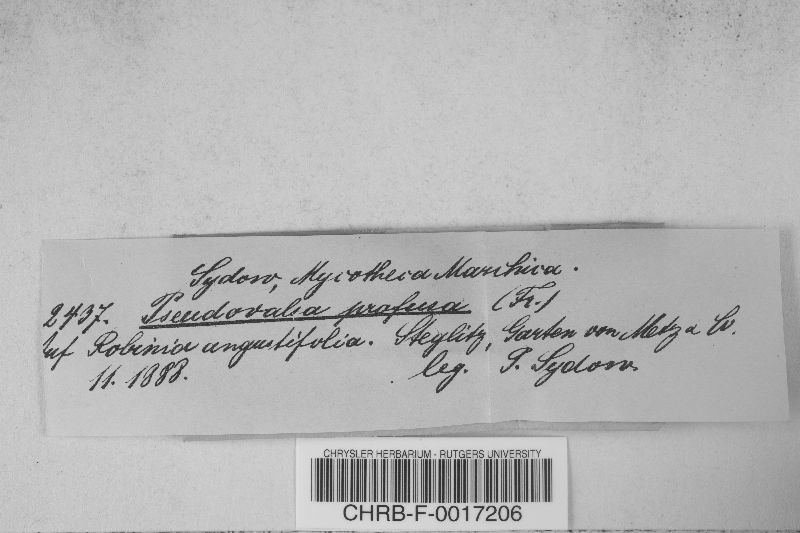 Sydow, Mycotheca Marchica.
2437. Pseudovalsa profusa (Fr.)
Auf Robinia angustifolia. Steglitz, Garten von Metz & Co.
11. 1888. leg. P. Sydow.
CHRYSLER HERBARIUM - RUTGERS UNIVERSITY
CHRB-F-0017206